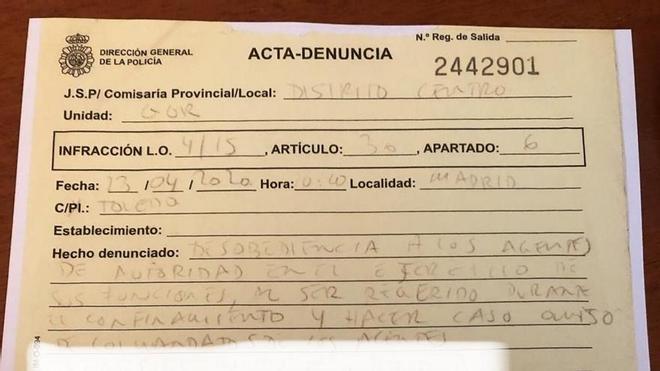 N.º Reg. de Salida
DIRECCIÓN GENERAL
DE LA POLICÍA
ACTA-DENUNCIA
2442901
J.S.P/ Comisaría Provincial/Local: DISTRITO CENTRO
Unidad: GOR
INFRACCIÓN L.O. 4/15, ARTÍCULO: 36, APARTADO: 6
Fecha: 23 /04 /2020 Hora: 10:40 Localidad: MADRID
C/Pl.: TOLEDO
Establecimiento:
Hecho denunciado: DESOBEDIENCIA A LOS AGENTES
DE AUTORIDAD EN EL EJERCICIO DE
SUS FUNCIONES, AL SER REQUERIDO DURANTE
EL CONFINAMIENTO Y HACER CASO OMISO
DE LOS MANDATOS DE LOS AGENTES